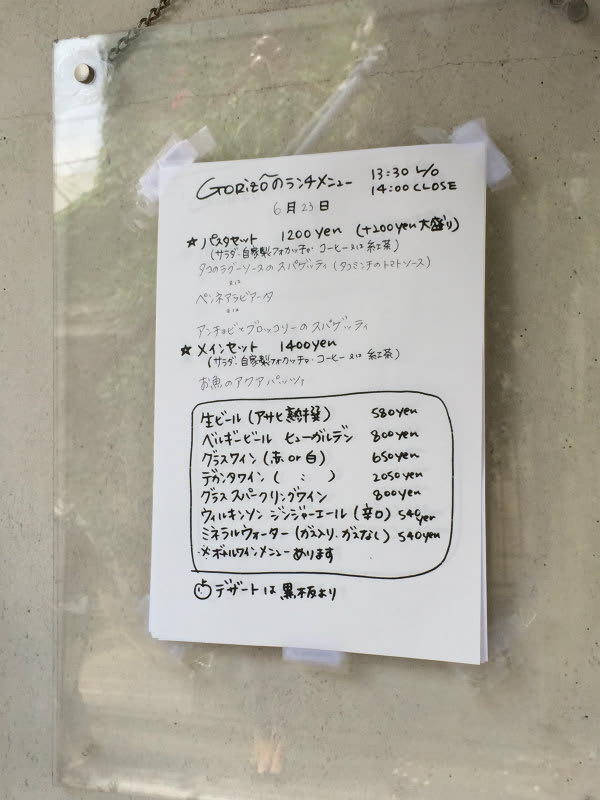 GORIZôのランチメニュー 13:30 L/O
14:00 CLOSE
6月23日
☆パスタセット 1200yen (+200yen 大盛り)
(サラダ・自家製フォカッチャ・コーヒー又は紅茶)
タコのラグーソースのスパゲッティ(タコミンチのトマトソース)
又は
ペンネアラビアータ
又は
アンチョビとブロッコリーのスパゲッティ
☆メインセット 1400yen
(サラダ・自家製フォカッチャ・コーヒー又は紅茶)
お魚のアクアパッツァ
生ビール(アサヒ熟撰) 580yen
ベルギービール ヒューガルデン 800yen
グラスワイン(赤or白) 650yen
デカンタワイン( : ) 2050yen
グラススパークリングワイン 800yen
ウィルキンソン ジンジャーエール(辛口) 540yen
ミネラルウォーター(ガス入り.ガスなし) 540yen
※ボトルワインメニューあります
デザートは黒板より